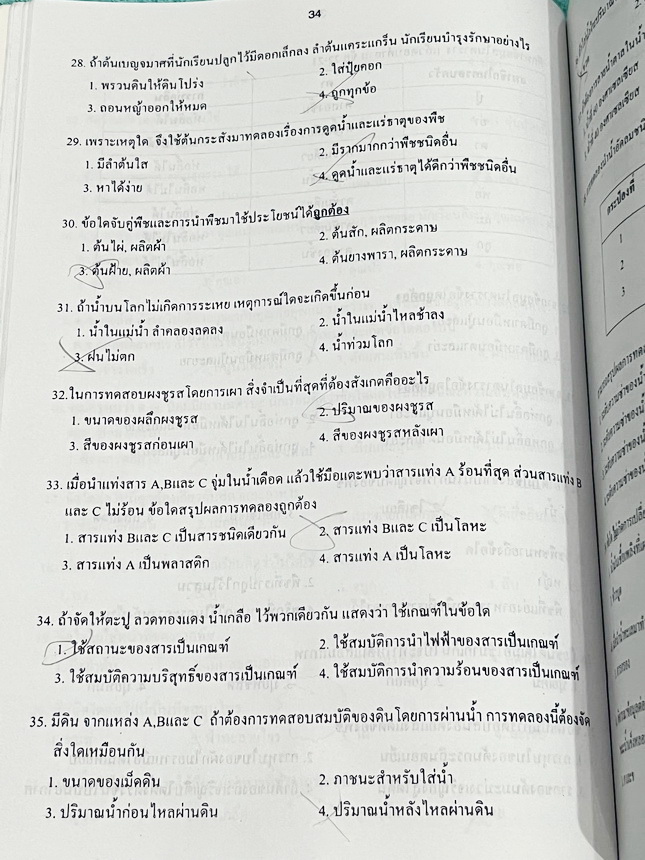 34
28. ถ้าต้นเบญจมาศที่นักเรียนปลูกไว้มีดอกเล็กลง ลำต้นแคระแกร็น นักเรียนบำรุงรักษาอย่างไร
1. พรวนดินให้ดินโปร่ง 2. ใส่ปุ๋ยคอก
3. ถอนหญ้าออกให้หมด 4. ถูกทุกข้อ
29. เพราะเหตุใด จึงใช้ต้นกระสังมาทดลองเรื่องการดูดน้ำและแร่ธาตุของพืช
1. มีลำต้นใส 2. มีรากมากกว่าพืชชนิดอื่น
3. หาได้ง่าย 4. ดูดน้ำและแร่ธาตุได้ดีกว่าพืชชนิดอื่น
30. ข้อใดจับคู่พืชและการนำพืชมาใช้ประโยชน์ได้ถูกต้อง
1. ต้นไผ่, ผลิตผ้า 2. ต้นสัก, ผลิตกระดาษ
3. ต้นฝ้าย, ผลิตผ้า 4. ต้นยางพารา, ผลิตกระดาษ
31. ถ้าน้ำบนโลกไม่เกิดการระเหย เหตุการณ์ใดจะเกิดขึ้นก่อน
1. น้ำในแม่น้ำ ลำคลองลดลง 2. น้ำในแม่น้ำไหลช้าลง
3. ฝนไม่ตก 4. น้ำท่วมโลก
32.ในการทดสอบผงชูรสโดยการเผา สิ่งจำเป็นที่สุดที่ต้องสังเกตคืออะไร
1. ขนาดของผลึกผงชูรส 2. ปริมาณของผงชูรส
3. สีของผงชูรสก่อนเผา 4. สีของผงชูรสหลังเผา
33. เมื่อนำแท่งสาร A,Bและ C จุ่มในน้ำเดือด แล้วใช้มือแตะพบว่าสารแท่ง A ร้อนที่สุด ส่วนสารแท่ง B
และ C ไม่ร้อน ข้อใดสรุปผลการทดลองถูกต้อง
1. สารแท่ง Bและ C เป็นสารชนิดเดียวกัน 2. สารแท่ง Bและ C เป็นโลหะ
3. สารแท่ง A เป็นพลาสติก 4. สารแท่ง A เป็นโลหะ
34. ถ้าจัดให้ตะปู ลวดทองแดง น้ำเกลือ ไว้พวกเดียวกัน แสดงว่า ใช้เกณฑ์ในข้อใด
1. ใช้สถานะของสารเป็นเกณฑ์ 2. ใช้สมบัติการนำไฟฟ้าของสารเป็นเกณฑ์
3. ใช้สมบัติความบริสุทธิ์ของสารเป็นเกณฑ์ 4. ใช้สมบัติการนำความร้อนของสารเป็นเกณฑ์
35. มีดิน จากแหล่ง A,Bและ C ถ้าต้องการทดสอบสมบัติของดินโดยการผ่านน้ำ การทดลองนี้ต้องจัด
สิ่งใดเหมือนกัน
1. ขนาดของเม็ดดิน 2. ภาชนะสำหรับใส่น้ำ
3. ปริมาณน้ำก่อนไหลผ่านดิน 4. ปริมาณน้ำหลังไหลผ่านดิน
กระป๋องที่
1
2
3